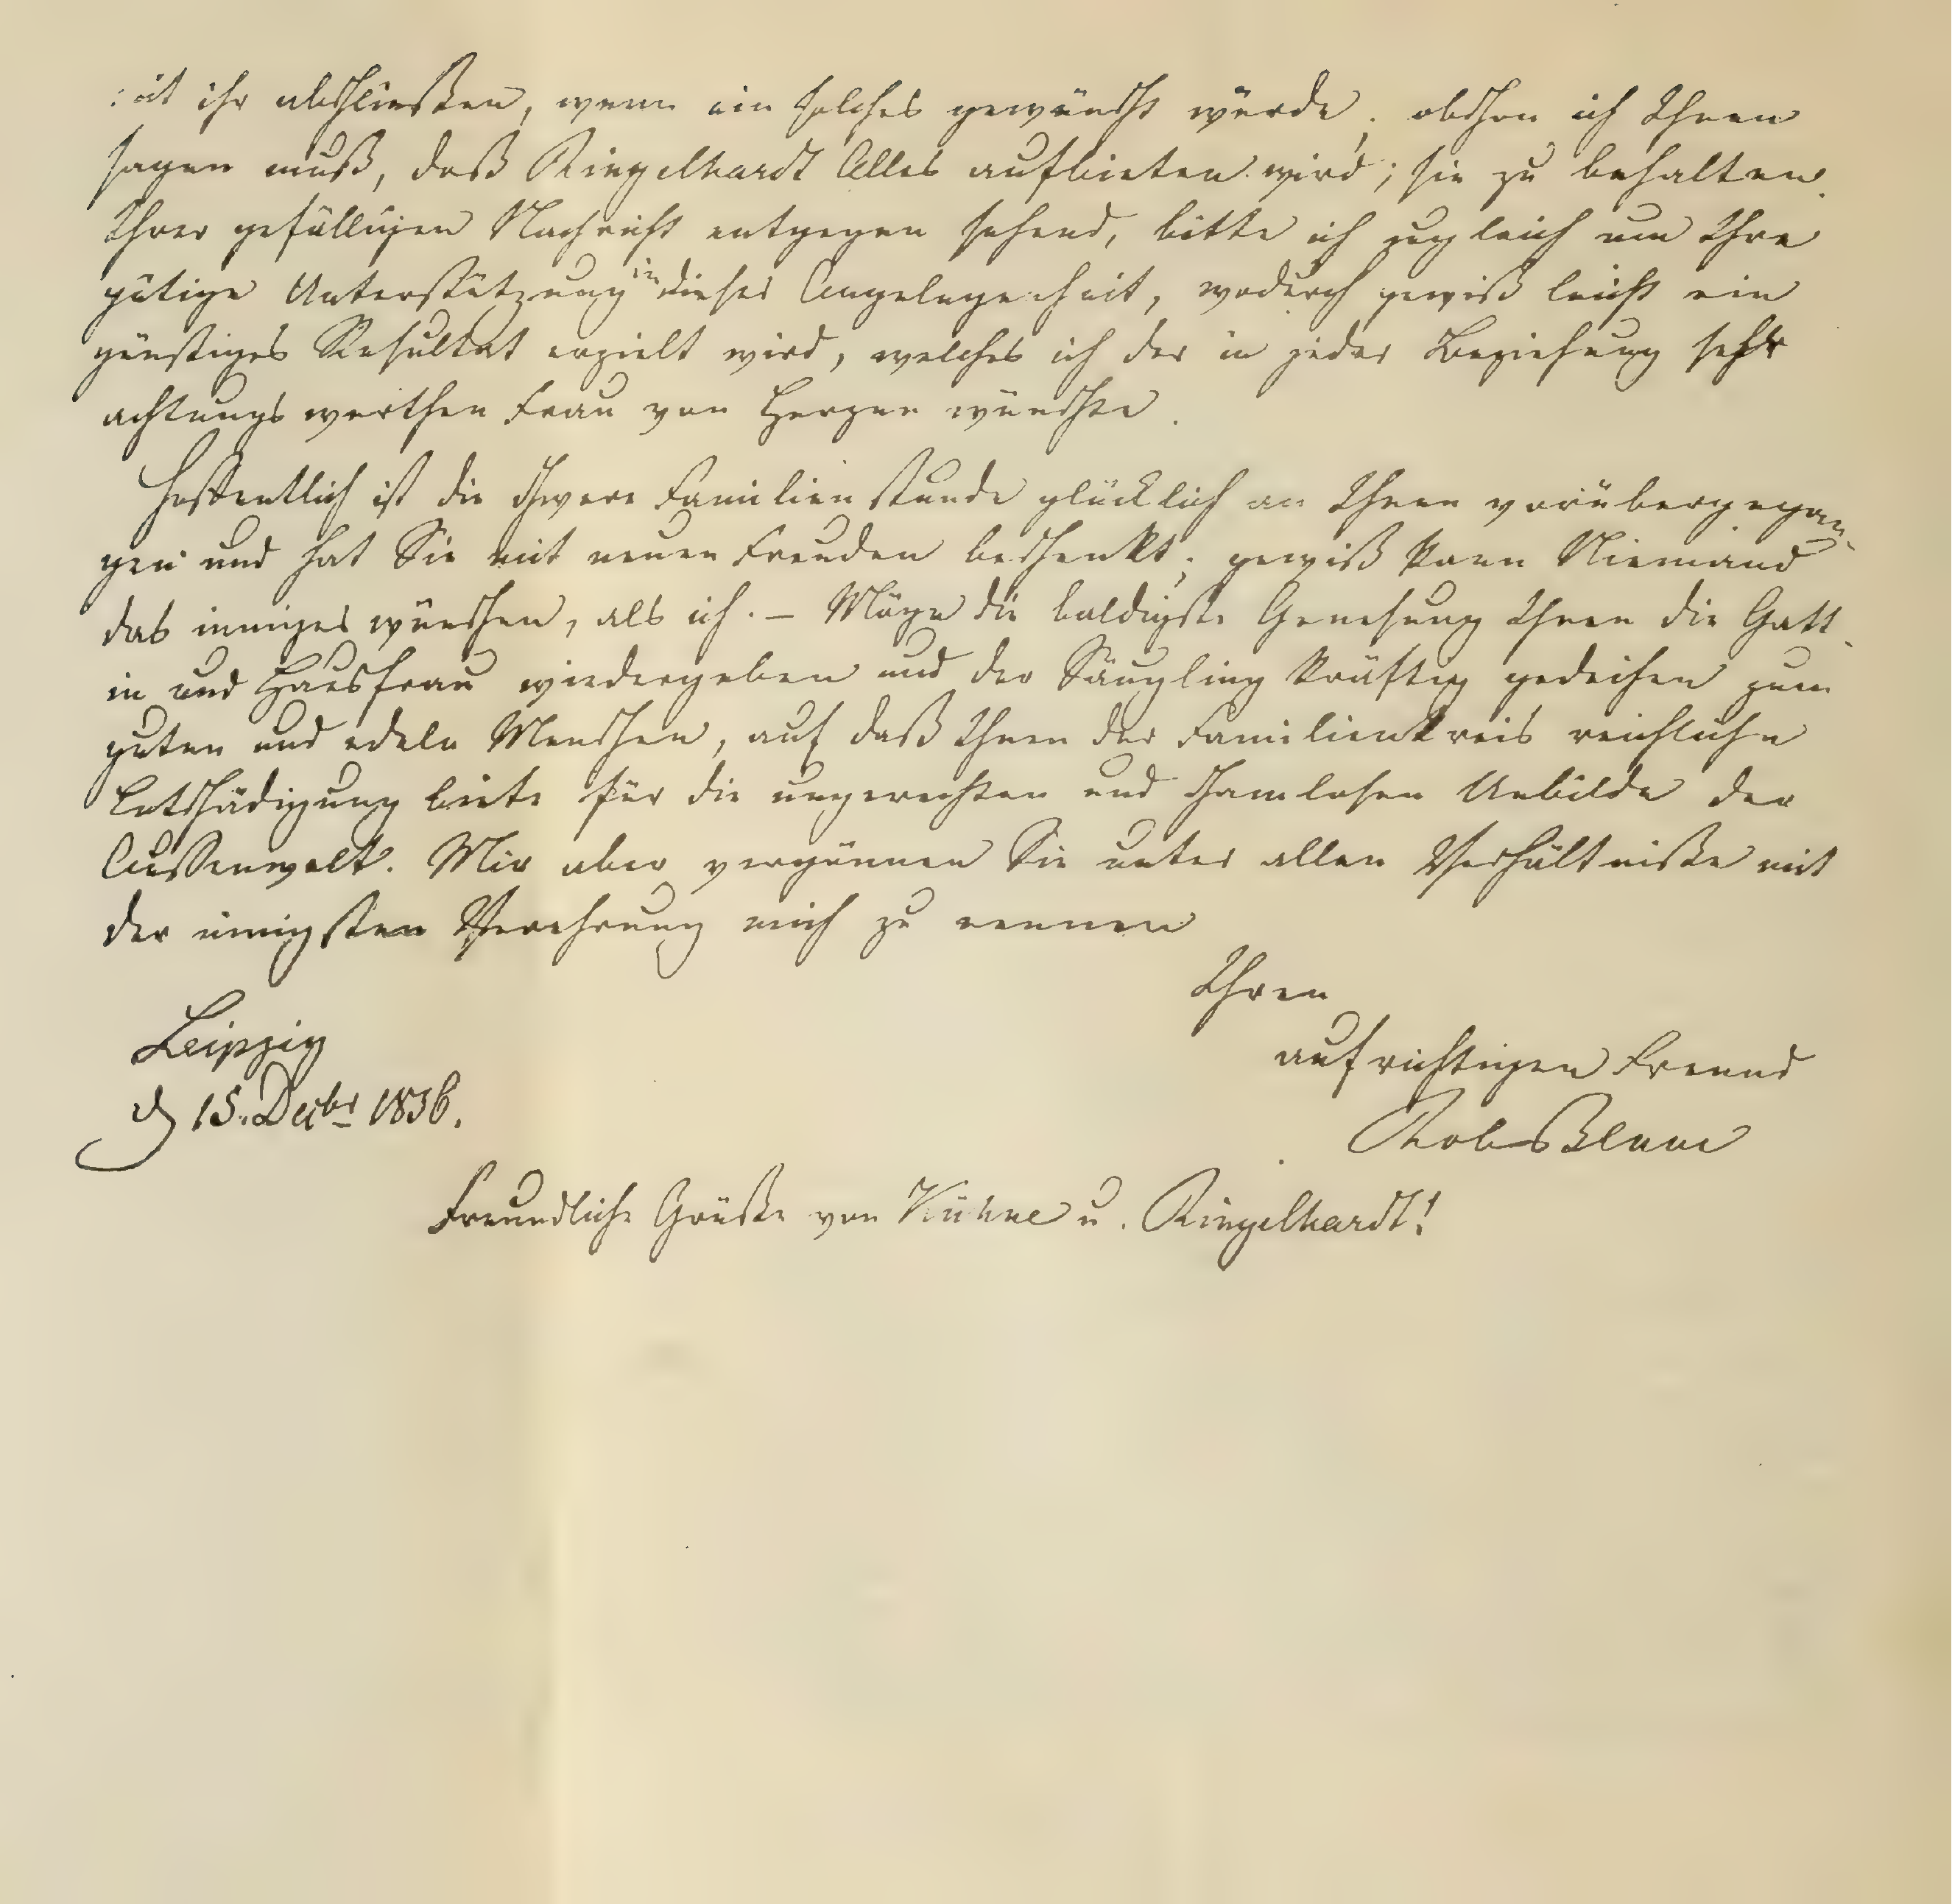 mit ihr abschließen, wenn ein solches gewünscht würde; obschon ich Ihnen
sagen muß, daß Ringelhardt Alles aufbieten wird, sie zu behalten.
Ihrer gefälligen Nachricht entgegen sehend, bitte ich zugleich um Ihre
gütige Unterstützung in dieser Angelegenheit, wodurch gewiß leicht ein
günstiges Resultat erzielt wird, welches ich der in jeder Beziehung sehr
achtungswerthen Frau von Herzen wünsche.
Hoffentlich ist die schwere Familienstunde glücklich an Ihnen vorübergegan-
gen und hat Sie mit neuen Freuden beschenkt; gewiß kann Niemand
das inniger wünschen, als ich. – Möge die baldigste Genesung Ihnen die Gatt-
in und Hausfrau wiedergeben und der Säugling kräftig gedeihen zum
guten und edeln Menschen, auf daß Ihnen der Familienkreis reichliche
Entschädigung biete für die ungerechten und schamlosen Unbilde der
Aussenwelt. Mir aber vergönnen Sie unter allen Verhältnißen mit
der innigsten Verehrung mich zu nennen
Ihren
aufrichtigen Freund
Rob Blum
Leipzig
d 15. Decbr 1836.
Freundliche Grüße von Kühne u. Ringelhardt!